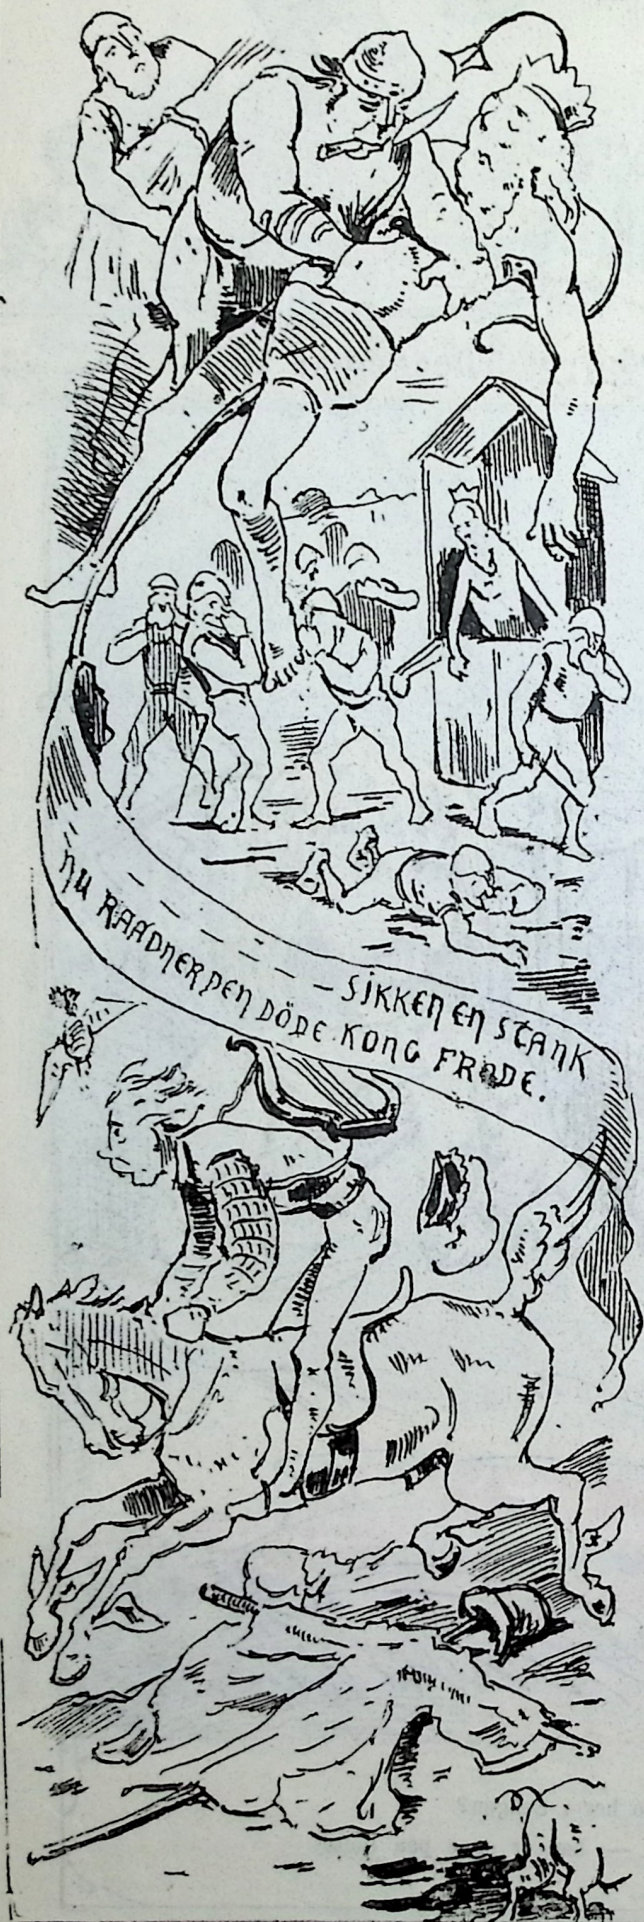 SIKKEN EN STANK
NU RAADNER DEN DÖDE KONG FRODE.